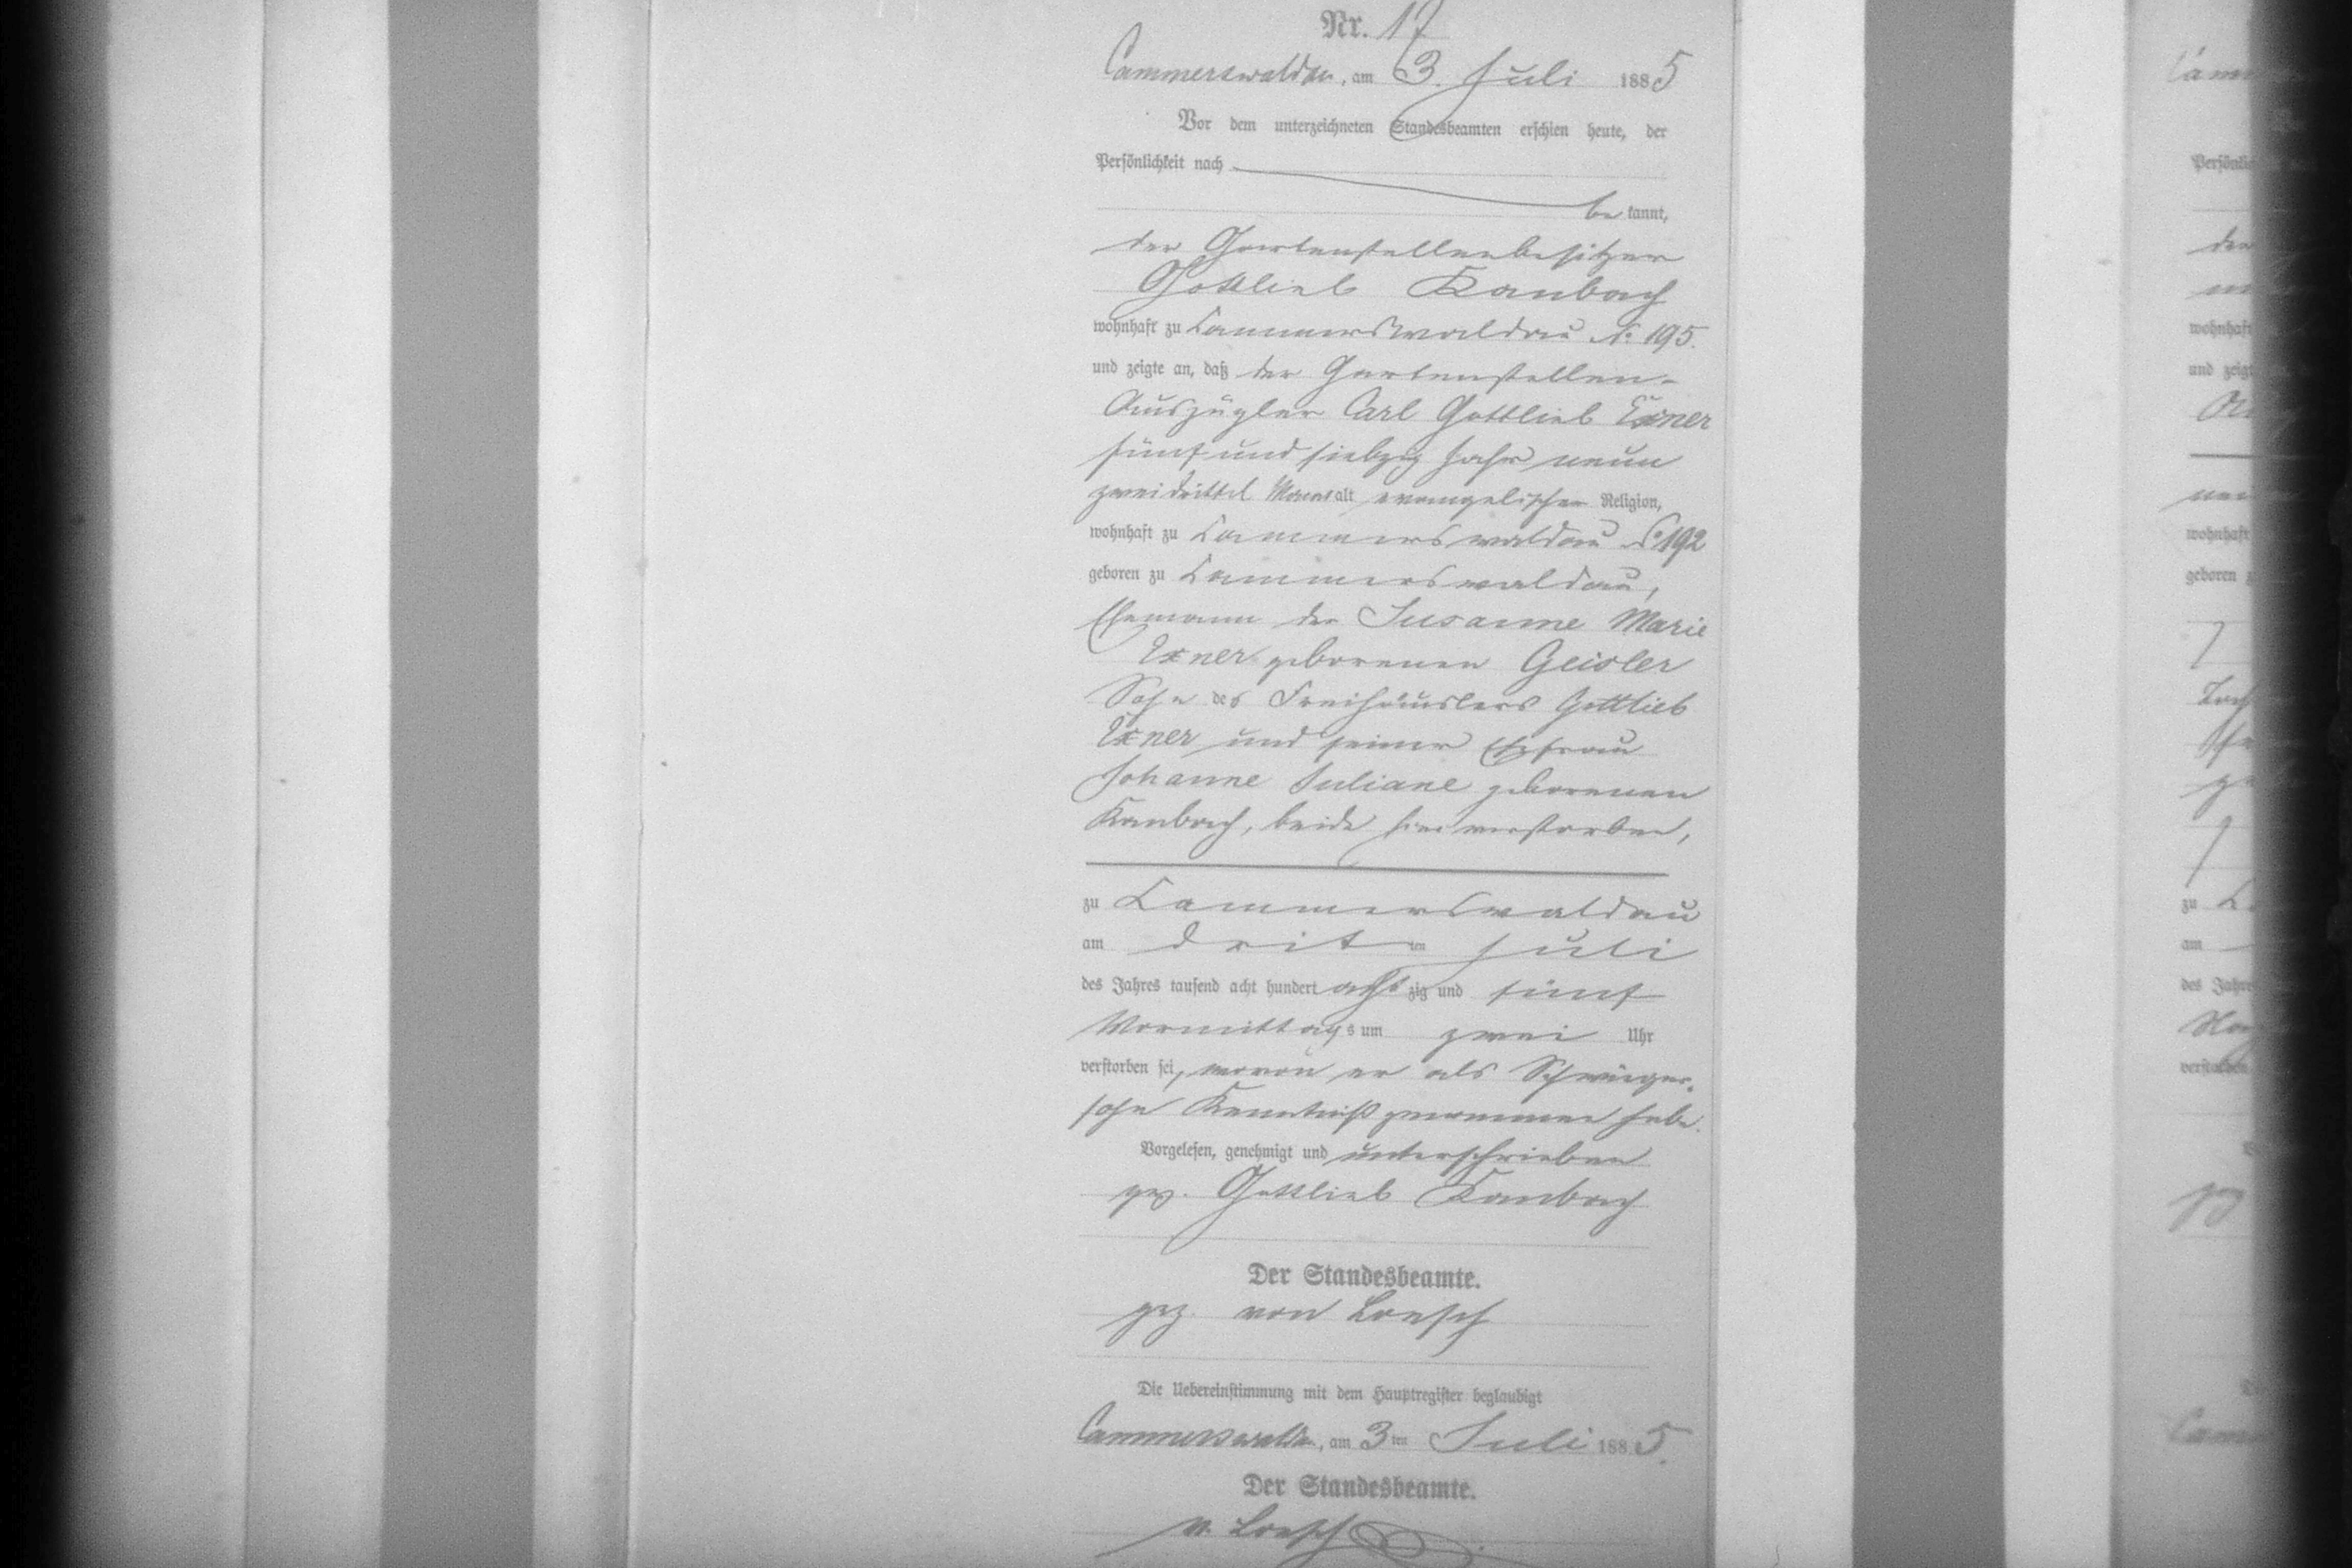 Nr. 17
Cammerswaldau, am 3. Juli 1885
Vor dem unterzeichneten Standesbeamten erschien heute, der
Persönlichkeit nach
be kannt,
der Gartenstellenbesitzer
Gottlieb Kanbach
wohnhaft zu Cammerswaldau No 195.
und zeigte an, daß der Gartenstellen-
Auszügler Carl Gottlieb Exner
fünf und siebzig Jahr neun
zweidrittel Monat alt evangelischer Religion,
wohnhaft zu Cammerswaldau No 192
geboren zu Cammerswaldau,
Ehemann der Susanne Marie
Exner geborenen Geisler
Sohn des Freihäuslers Gottlieb
Exner und seiner Ehefrau
Johanne Juliane geborenen
Kanbach, beide hier verstorben,
zu Cammerswaldau
am dritten Juli
des Jahres tausend acht hundert acht zig und fünf
Vormittags um zwei Uhr
verstorben sei, wovon er als Schwieger-
sohn Kenntniß genommen habe.
Vorgelesen, genehmigt und unterschrieben
gez. Gottlieb Kanbach
Der Standesbeamte.
gez. von Loesch
Die Uebereinstimmung mit dem Hauptregister beglaubigt
Cammerswaldau, am 3ten Juli 1885.
Der Standesbeamte.
v. Loesch